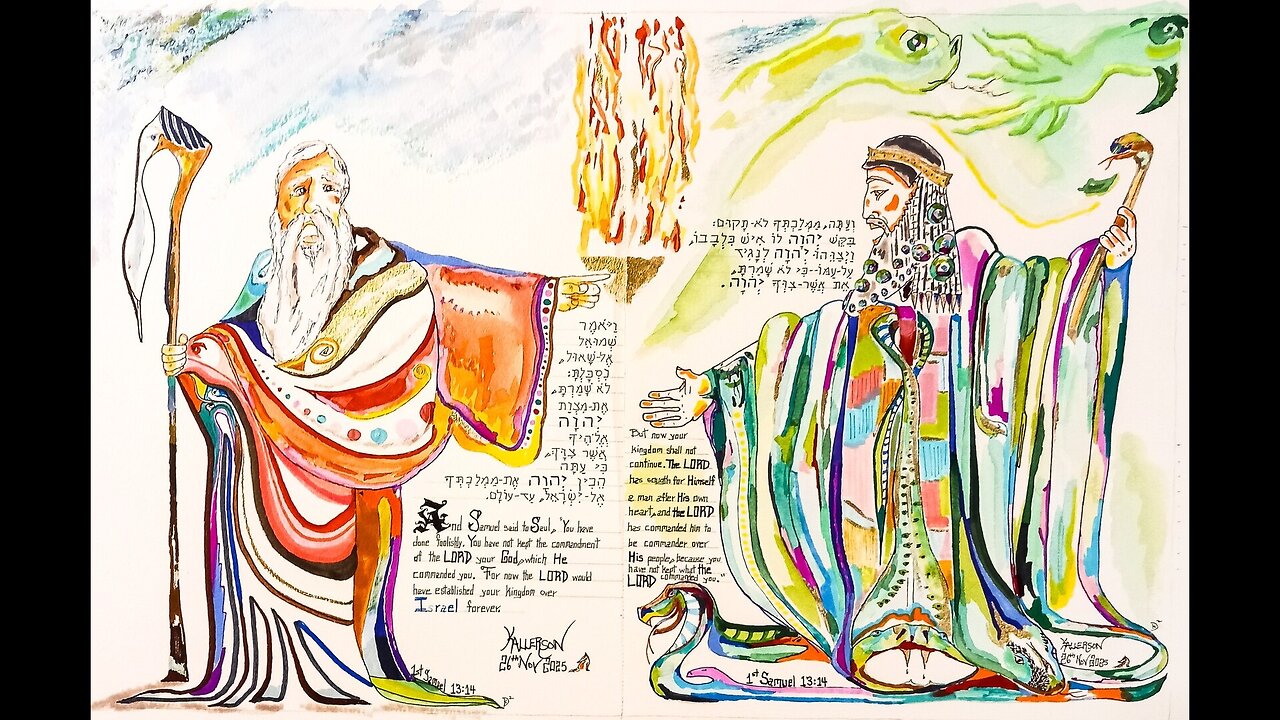 וַיֹּאמֶר
שְׁמוּאֵל
אֶל-שָׁאוּל,
נִסְכָּלְתָּ:
לֹא שָׁמַרְתָּ,
אֶת-מִצְוַת
יְהוָה
אֱלֹהֶיךָ
אֲשֶׁר צִוָּךְ,
כִּי עַתָּה
הֵכִין יְהוָה אֶת-מַמְלַכְתְּךָ
אֶל-יִשְׂרָאֵל, עַד-עוֹלָם.
And Samuel said to Saul, "You have
done foolishly. You have not kept the commandment
of the LORD your God, which He
commanded you. For now the LORD would
have established your kingdom over
Israel forever.
KALLERSON
26th Nov 2025
1st Samuel 13:14
וְעַתָּה, מַמְלַכְתְּךָ לֹא-תָקוּם:
בִּקֵּשׁ יְהוָה לוֹ אִישׁ כִּלְבָבוֹ,
וַיְצַוֵּהוּ יְהוָה לְנָגִיד
עַל-עַמּוֹ-כִּי לֹא שָׁמַרְתָּ,
אֵת אֲשֶׁר-צִוְּךָ יְהוָה.
But now your
kingdom shall not
continue. The LORD
has sought for Himself
a man after His own
heart, and the LORD
has commanded him to
be commander over
His people, because you
have not kept what the
LORD commanded you."
1st Samuel 13:14
KALLERSON
26th Nov 2025